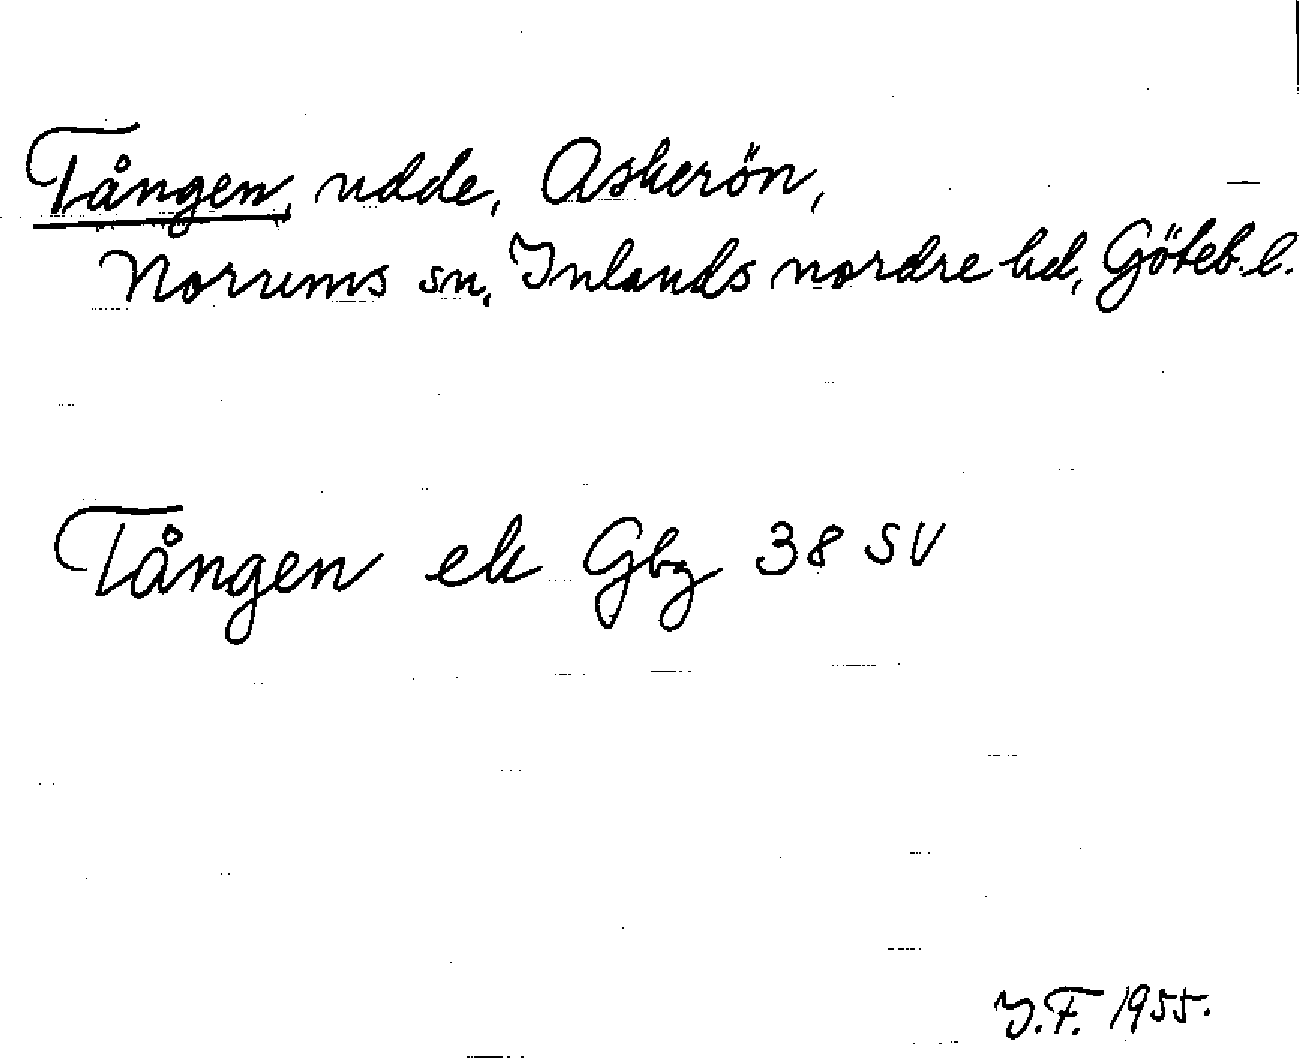 Tången, udde, Askerön,
Norums sn, Inlands nordre hd, Göteb. l.
Tången ek Gbg 38 SV
I.F. 1955.